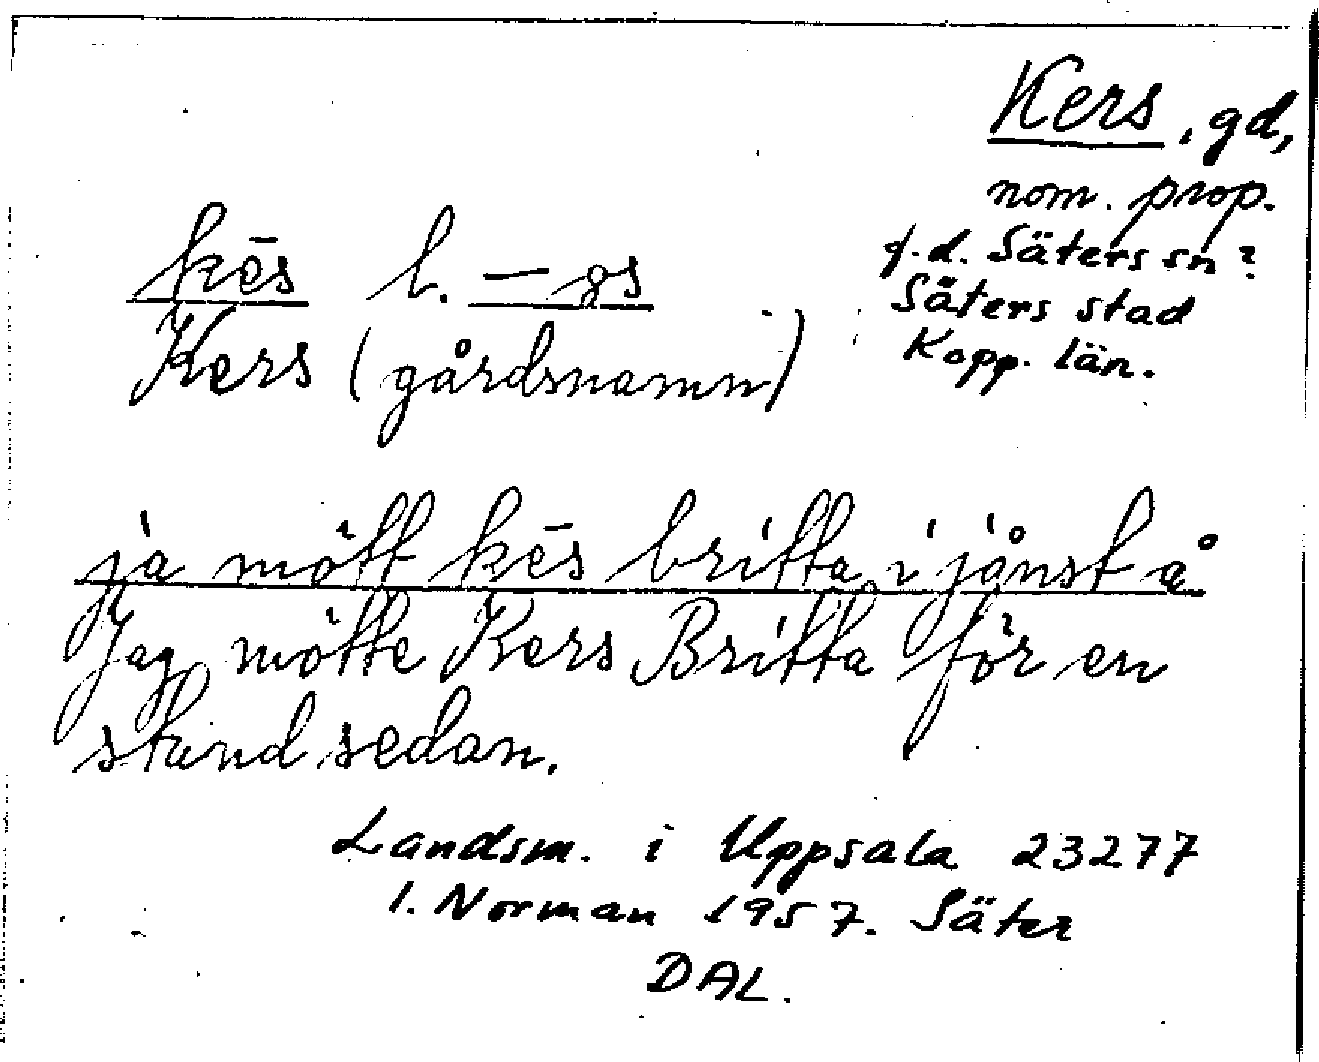 Kers, gd,
nom. prop.
f.d. Säters sn?
Säters stad
Kopp. län.
kēs l. – gs
Kers (gårdsnamn)
ja mött kēs britta i jånst å
Jag mötte Kers Britta för en
stund sedan.
Landsm. i Uppsala 23277
I. Norman 1957. Säter
DAL.